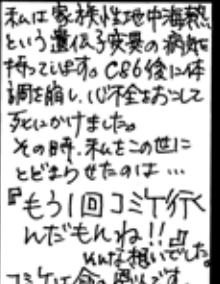 私は家族性地中海熱
という遺伝子変異の病気を
持っています。C86後に体
調を崩し、心不全をおこして
死にかけました。
その時、私をこの世に
とどまらせたのは…
『もう1回コミケ行く
んだもんね!!』
そんな想いでした。
コミケは命の恩人です。